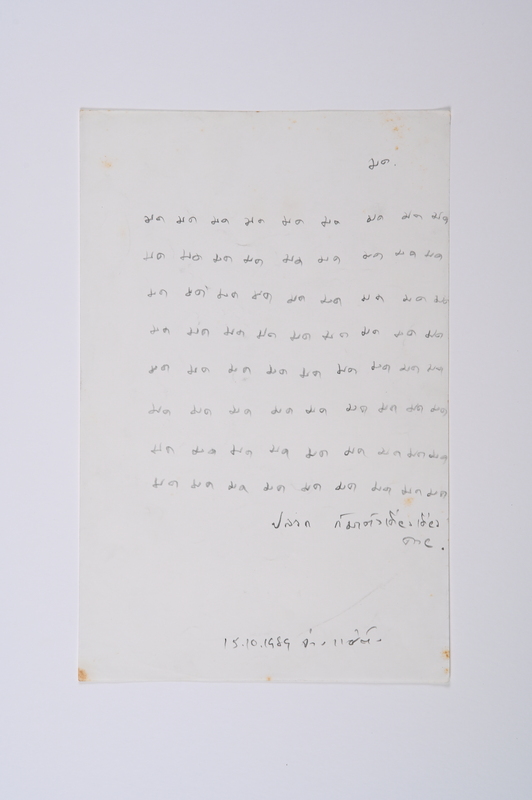 มด.
มด มด มด มด มด มด มด มด มด
มด มด มด มด มด มด มด มด มด
มด มด มด มด มด มด มด มด มด
มด มด มด มด มด มด มด มด มด
มด มด มด มด มด มด มด มด มด
มด มด มด มด มด มด มด มด มด
มด มด มด มด มด มด มด มด มด
มด มด มด มด มด มด มด มด มด
ปลวก ก็มาตัวเดียว
ตาย.
15.10.1989 จ่าง แซ่ตั้ง